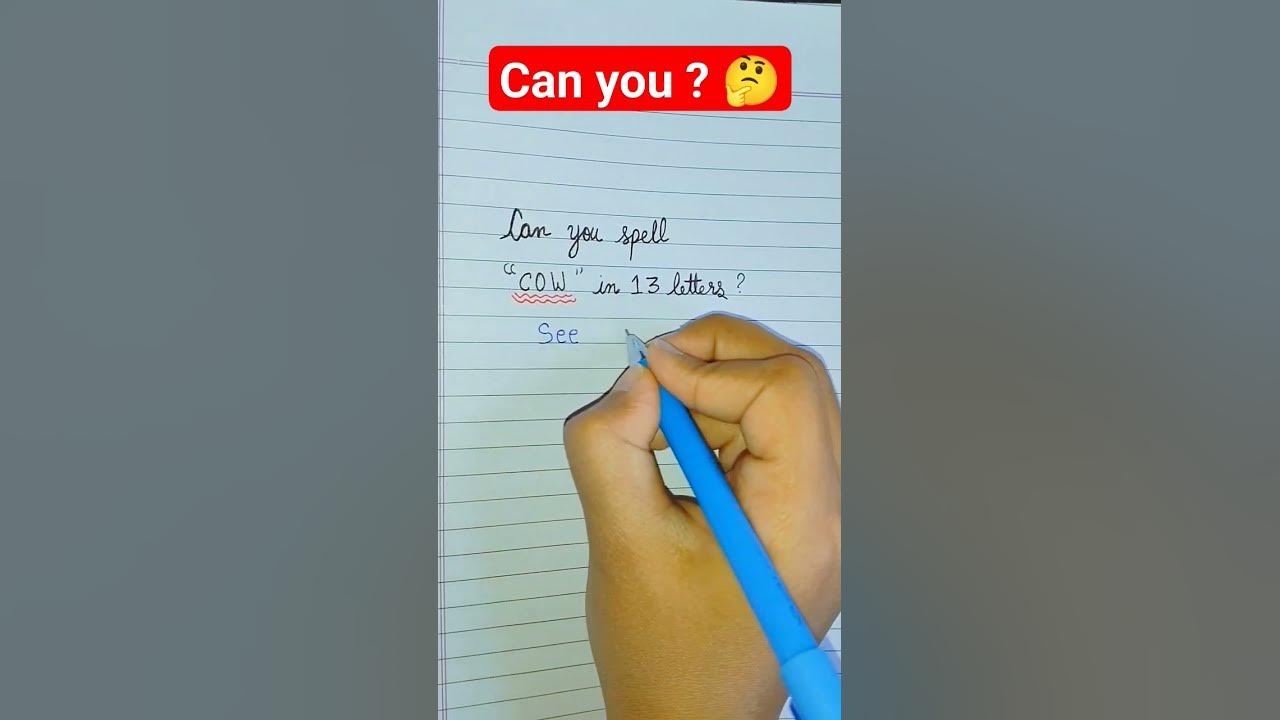 Can you ? 🤔
Can you spell
"COW" in 13 letters?
See